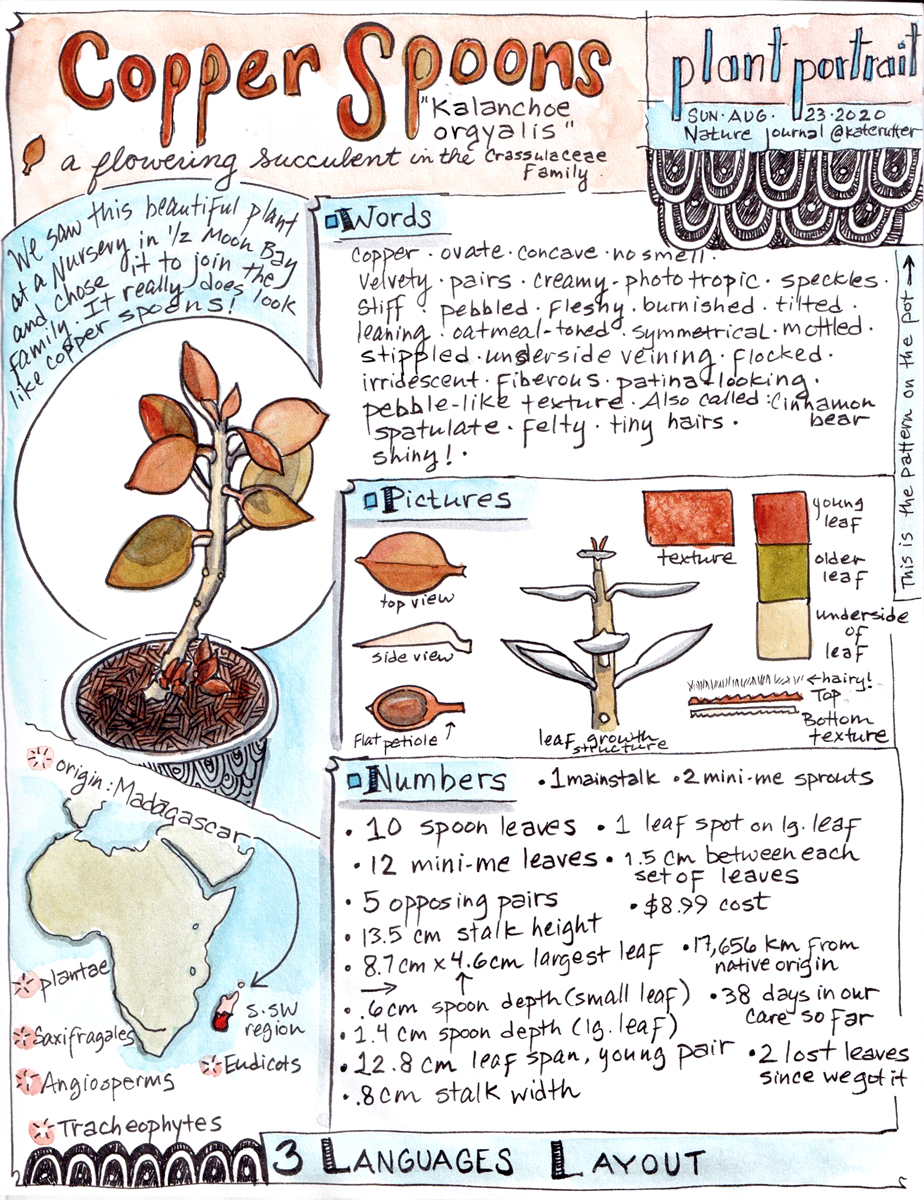 Copper Spoons
"Kalanchoe
orgyalis"
a flowering succulent in the Crassulaceae
Family
plant portrait
SUN·AUG· 23·2020
Nature journal @katerutter
We saw this beautiful plant
at a Nursery in 1/2 Moon Bay
and chose it to join the
family. It really does look
like copper spoons!
Words
copper · ovate · concave · no smell ·
velvety · pairs · creamy · photo tropic · speckles ·
stiff · pebbled · fleshy · burnished · tilted ·
leaning · oatmeal-toned · symmetrical · mottled ·
stippled · underside veining · flocked ·
irridescent · fiberous · patina-looking ·
pebble-like texture · Also called: Cinnamon
bear
spatulate · felty · tiny hairs ·
shiny! ·
This is the pattern on the pot →
Pictures
top view
side view
Flat petiole
leaf growth
structure
texture
young
leaf
older
leaf
underside
of
leaf
←hairy!
Top
Bottom
texture
Numbers
• 1 mainstalk • 2 mini-me sprouts
• 10 spoon leaves
• 12 mini-me leaves
• 5 opposing pairs
• 13.5 cm stalk height
• 8.7cm x 4.6cm largest leaf
• .6cm spoon depth (small leaf)
• 1.4 cm spoon depth (lg. leaf)
• 12.8 cm leaf span, young pair
• .8cm stalk width
• 1 leaf spot on lg. leaf
• 1.5 cm between each
set of leaves
• $8.99 cost
• 17,656 km from
native origin
• 38 days in our
care so far
• 2 lost leaves
since we got it
origin: Madagascar
S·SW
region
plantae
Saxifragales
Eudicots
Angiosperms
Tracheophytes
3 LANGUAGES LAYOUT